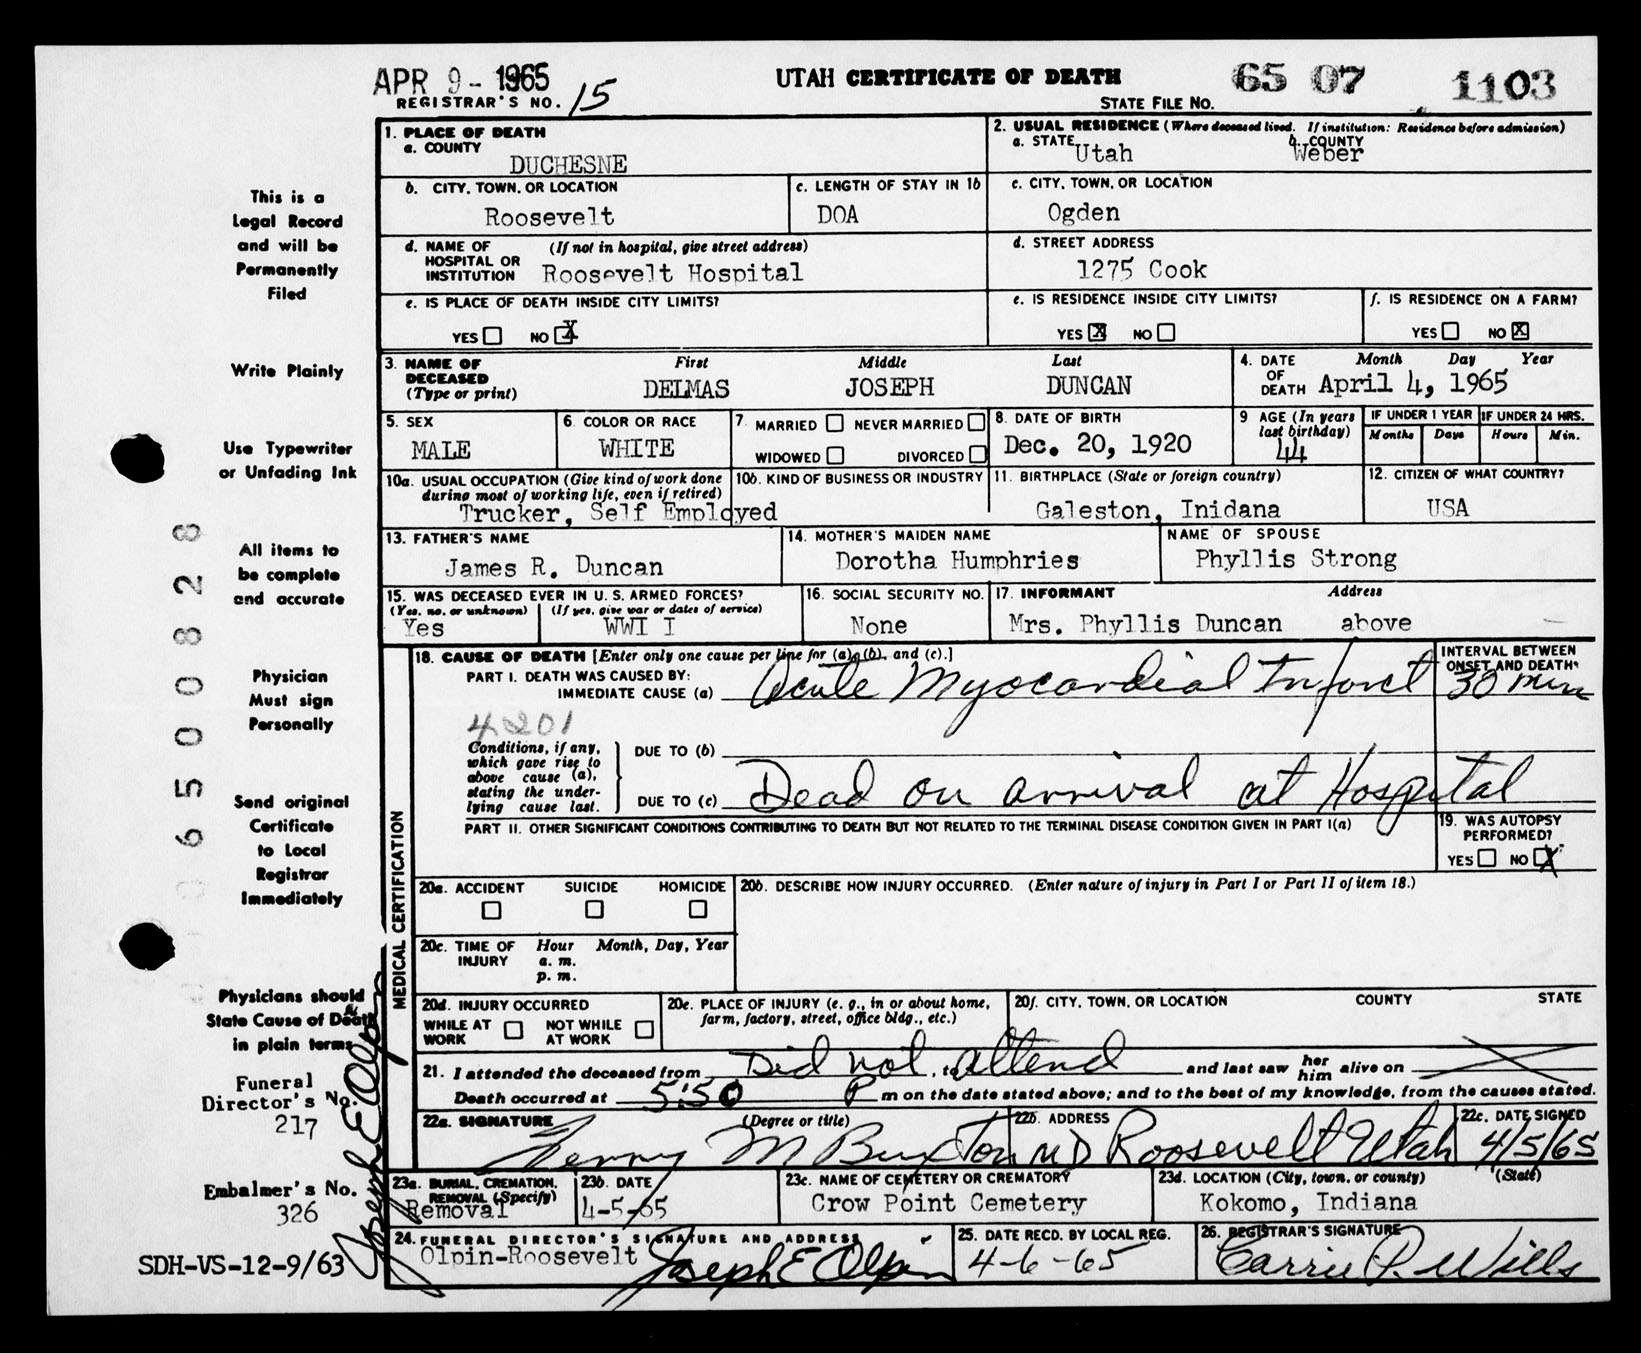 APR 9 - 1965
REGISTRAR'S NO. 15
UTAH CERTIFICATE OF DEATH
STATE FILE NO. 65 07 1103
1. PLACE OF DEATH
a. COUNTY
DUCHESNE
2. USUAL RESIDENCE (Where deceased lived. If institution: Residence before admission)
a. STATE Utah
b. COUNTY Weber
b. CITY, TOWN, OR LOCATION
Roosevelt
c. LENGTH OF STAY IN 1b
DOA
c. CITY, TOWN, OR LOCATION
Ogden
d. NAME OF HOSPITAL OR INSTITUTION (If not in hospital, give street address)
Roosevelt Hospital
d. STREET ADDRESS
1275 Cook
e. IS PLACE OF DEATH INSIDE CITY LIMITS?
YES NO X
e. IS RESIDENCE INSIDE CITY LIMITS?
YES X NO
f. IS RESIDENCE ON A FARM?
YES NO X
3. NAME OF DECEASED (Type or print)
First Middle Last
DELMAS JOSEPH DUNCAN
4. DATE OF DEATH
Month Day Year
April 4, 1965
5. SEX
MALE
6. COLOR OR RACE
WHITE
7. MARRIED NEVER MARRIED
WIDOWED DIVORCED
8. DATE OF BIRTH
Dec. 20, 1920
9 AGE (In years last birthday)
44
IF UNDER 1 YEAR
Months Days
IF UNDER 24 HRS.
Hours Min.
10a. USUAL OCCUPATION (Give kind of work done during most of working life, even if retired)
10b. KIND OF BUSINESS OR INDUSTRY
Trucker, Self Employed
11. BIRTHPLACE (State or foreign country)
Galeston, Inidana
12. CITIZEN OF WHAT COUNTRY?
USA
13. FATHER'S NAME
James R. Duncan
14. MOTHER'S MAIDEN NAME
Dorotha Humphries
NAME OF SPOUSE
Phyllis Strong
15. WAS DECEASED EVER IN U.S. ARMED FORCES?
(Yes, no, or unknown) (If yes, give war or dates of service)
Yes WWI I
16. SOCIAL SECURITY NO.
None
17. INFORMANT Address
Mrs. Phyllis Duncan above
MEDICAL CERTIFICATION
18. CAUSE OF DEATH [Enter only one cause per line for (a), (b), and (c).]
PART I. DEATH WAS CAUSED BY:
IMMEDIATE CAUSE (a) Acute Myocardial Infarct
INTERVAL BETWEEN ONSET AND DEATH
30 min
4201
Conditions, if any, which gave rise to above cause (a), stating the underlying cause last.
DUE TO (b)
DUE TO (c) Dead on arrival at Hospital
PART II. OTHER SIGNIFICANT CONDITIONS CONTRIBUTING TO DEATH BUT NOT RELATED TO THE TERMINAL DISEASE CONDITION GIVEN IN PART I(a)
19. WAS AUTOPSY PERFORMED?
YES NO X
20a. ACCIDENT SUICIDE HOMICIDE
20b. DESCRIBE HOW INJURY OCCURRED. (Enter nature of injury in Part I or Part II of item 18.)
20c. TIME OF INJURY
Hour Month, Day, Year
a. m.
p. m.
20d. INJURY OCCURRED
WHILE AT WORK NOT WHILE AT WORK
20e. PLACE OF INJURY (e. g., in or about home, farm, factory, street, office bldg., etc.)
20f. CITY, TOWN, OR LOCATION COUNTY STATE
21. I attended the deceased from Did not, to Attend and last saw her him alive on
Death occurred at 5:50 P m on the date stated above; and to the best of my knowledge, from the causes stated.
22a. SIGNATURE (Degree or title)
M Buxton MD
22b. ADDRESS
Roosevelt Utah
22c. DATE SIGNED
4/5/65
23a. BURIAL, CREMATION, REMOVAL (Specify)
Removal
23b. DATE
4-5-65
23c. NAME OF CEMETERY OR CREMATORY
Crow Point Cemetery
23d. LOCATION (City, town, or county) (State)
Kokomo, Indiana
24. FUNERAL DIRECTOR'S SIGNATURE AND ADDRESS
Olpin-Roosevelt Joseph E Olpin
25. DATE RECD. BY LOCAL REG.
4-6-65
26. REGISTRAR'S SIGNATURE
Carrie P. Wills
This is a
Legal Record
and will be
Permanently
Filed
Write Plainly
Use Typewriter
or Unfading Ink
All items to
be complete
and accurate
Physician
Must sign
Personally
Send original
Certificate
to Local
Registrar
Immediately
Physicians should
State Cause of Death
in plain terms
Funeral
Director's No.
217
Embalmer's No.
326
SDH-VS-12-9/63
Joseph E Olpin
650000828